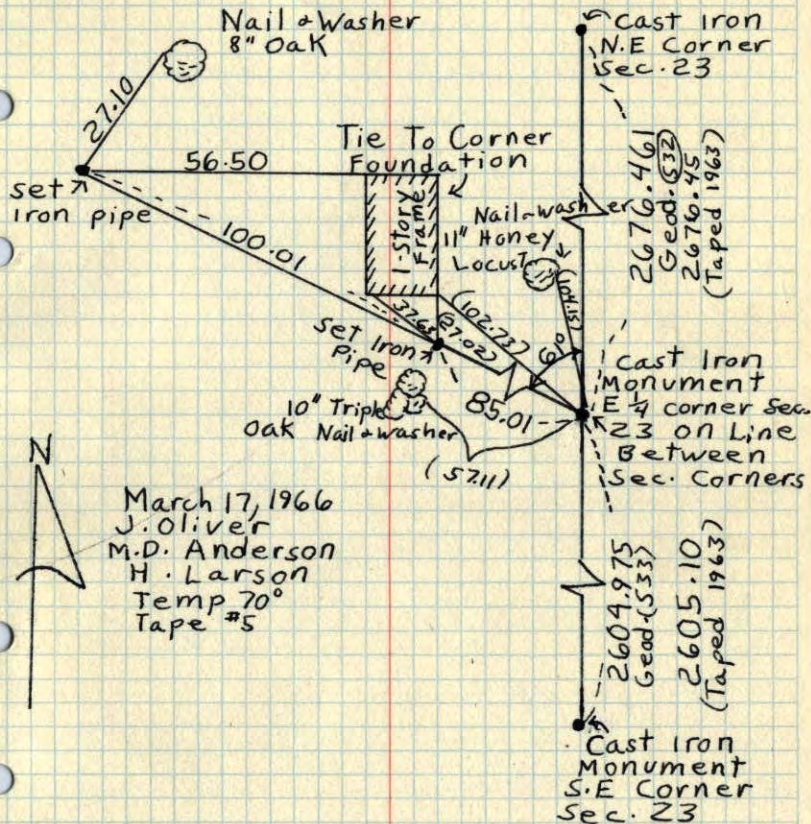 Nail & Washer
8" Oak
27.10
56.50
set
Iron pipe
100.01
Tie To Corner
Foundation
1-Story
Frame
Nail & washer
11" Honey
Locust
(104.15)
37.63
(27.02)
(102.73)
61°
set Iron
pipe
85.01
10" Triple
Oak Nail & washer
(57.11)
Cast Iron
N.E Corner
Sec. 23
2676.461
Geod. 532
2676.45
(Taped 1963)
Cast Iron
Monument
E 1/4 corner Sec.
23 on Line
Between
Sec. Corners
2604.975
Geod.(533)
2605.10
(Taped 1963)
Cast Iron
Monument
S.E Corner
Sec. 23
N
March 17, 1966
J. Oliver
M.D. Anderson
H. Larson
Temp 70°
Tape #5